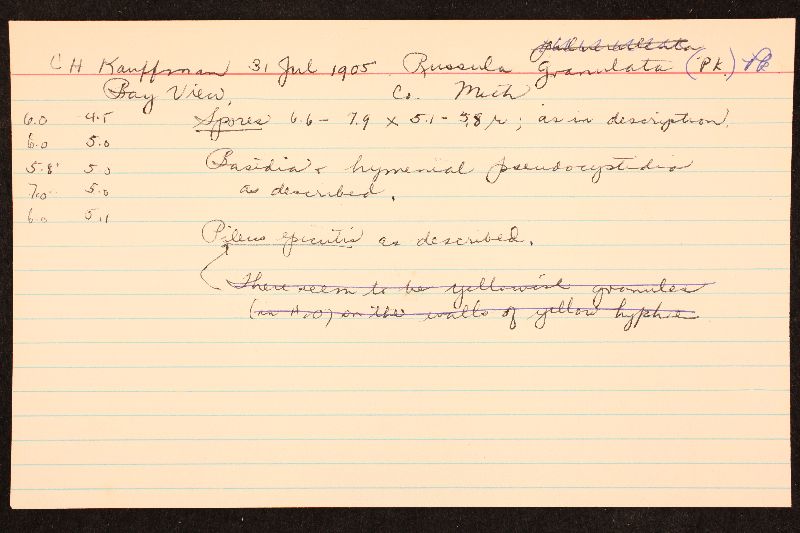 C H Kauffman 31 Jul 1905 Russula Granulata (Pk.) Pk
Bay View, Co. Mich
6.0 4.5 Spores 6.6 - 7.9 x 5.1 - 5.8 µ ; as in description.
6.0 5.0
5.8 5.0 Basidia & hymenial pseudocystidia
7.0 5.0 as described.
6.0 5.1
Pileus epicutis as described.
There seem to be yellowish granules
(in H2O) on the walls of yellow hyphae